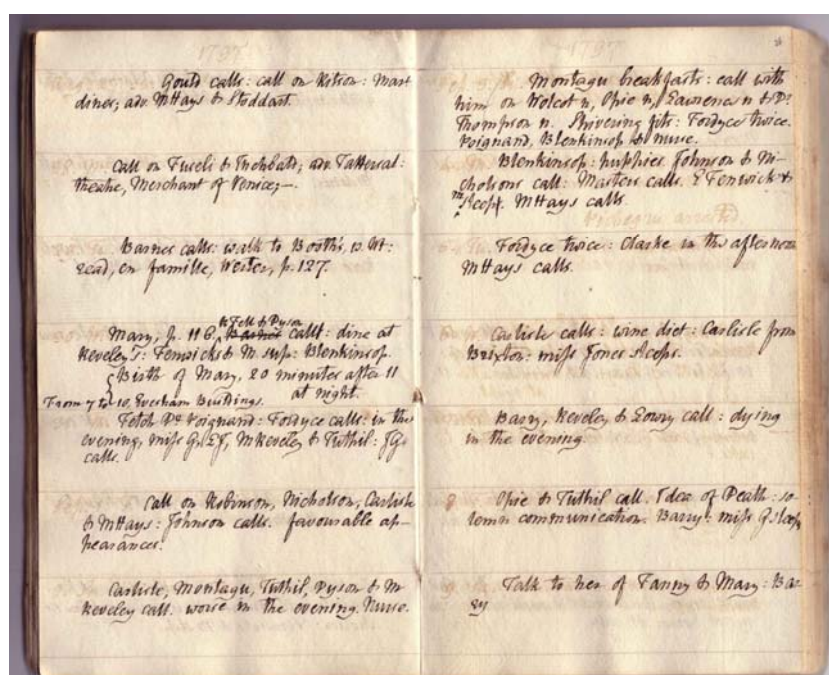 1797
Gould calls: call on Ritson: Mart
dines; adv. MHays & Stoddart.
call on Fuseli & Inchbald; adv. Tattersal:
theatre, Merchant of Venice; —.
Barnes calls: walk to Booth's,
read, en famille, Werter, p. 127.
Mary, p. 116. Fell & Dyson calls: dine at
Reveley's: Fenwicks & M. sup: Blenkinsop.
Birth of Mary, 20 minutes after 11
at night.
From 7 to 10, Evesham Buildings.
Fetch Dr Poignand: Fordyce calls: in the
evening, miss G, EJ, MReveley & Tuthil: JG
calls.
Call on Robinson, Nicholson, Carlisle
& MHays: Johnson calls. favourable ap-
pearances.
Carlisle, Montagu, Tuthil, Dyson & M
Reveley call. worse in the evening. Nurse.
1797
Montagu breakfasts: call with
him on Wolcot n, Opie n, Lawrence n & Dr
Thompson n. Shivering fits: Fordyce twice.
Poignand, Blenkinsop & nurse.
Blenkinsop: puppies. Johnson & Ni-
cholsons call: Masters calls. E Fenwick &
m sleep. MHays calls.
Pichegru arrested.
Fordyce twice: Clarke in the afternoon
MHays calls.
Carlisle calls: wine diet: Carlisle from
Brixton: miss Jones sleeps.
Barry, Reveley & Lowry call: dying
in the evening.
Opie & Tuthil call. Idea of Death: so-
lemn communication. Barry: miss G sleeps
Talk to her of Fanny & Mary: Bar-
ry